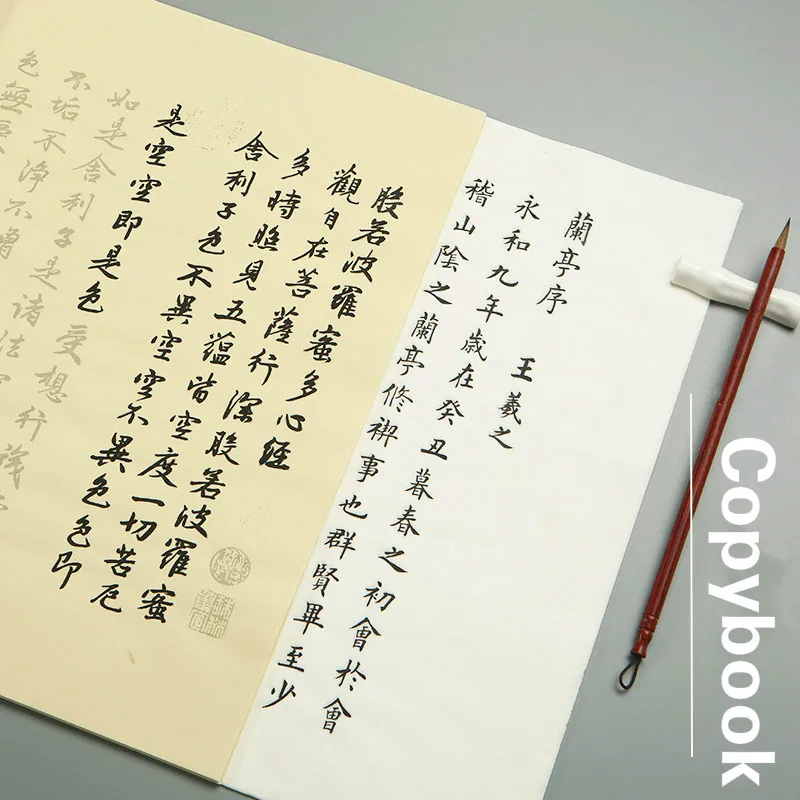 蘭亭序
王羲之
永和九年歲在癸丑暮春之初會於會
稽山陰之蘭亭修禊事也群賢畢至少
般若波羅蜜多心經
觀自在菩薩行深般若波羅蜜
多時照見五蘊皆空度一切苦厄
舍利子色不異空空不異色色即
是空空即是色受想行識
如是舍利子是諸法
不垢不淨不增
色無
Copybook